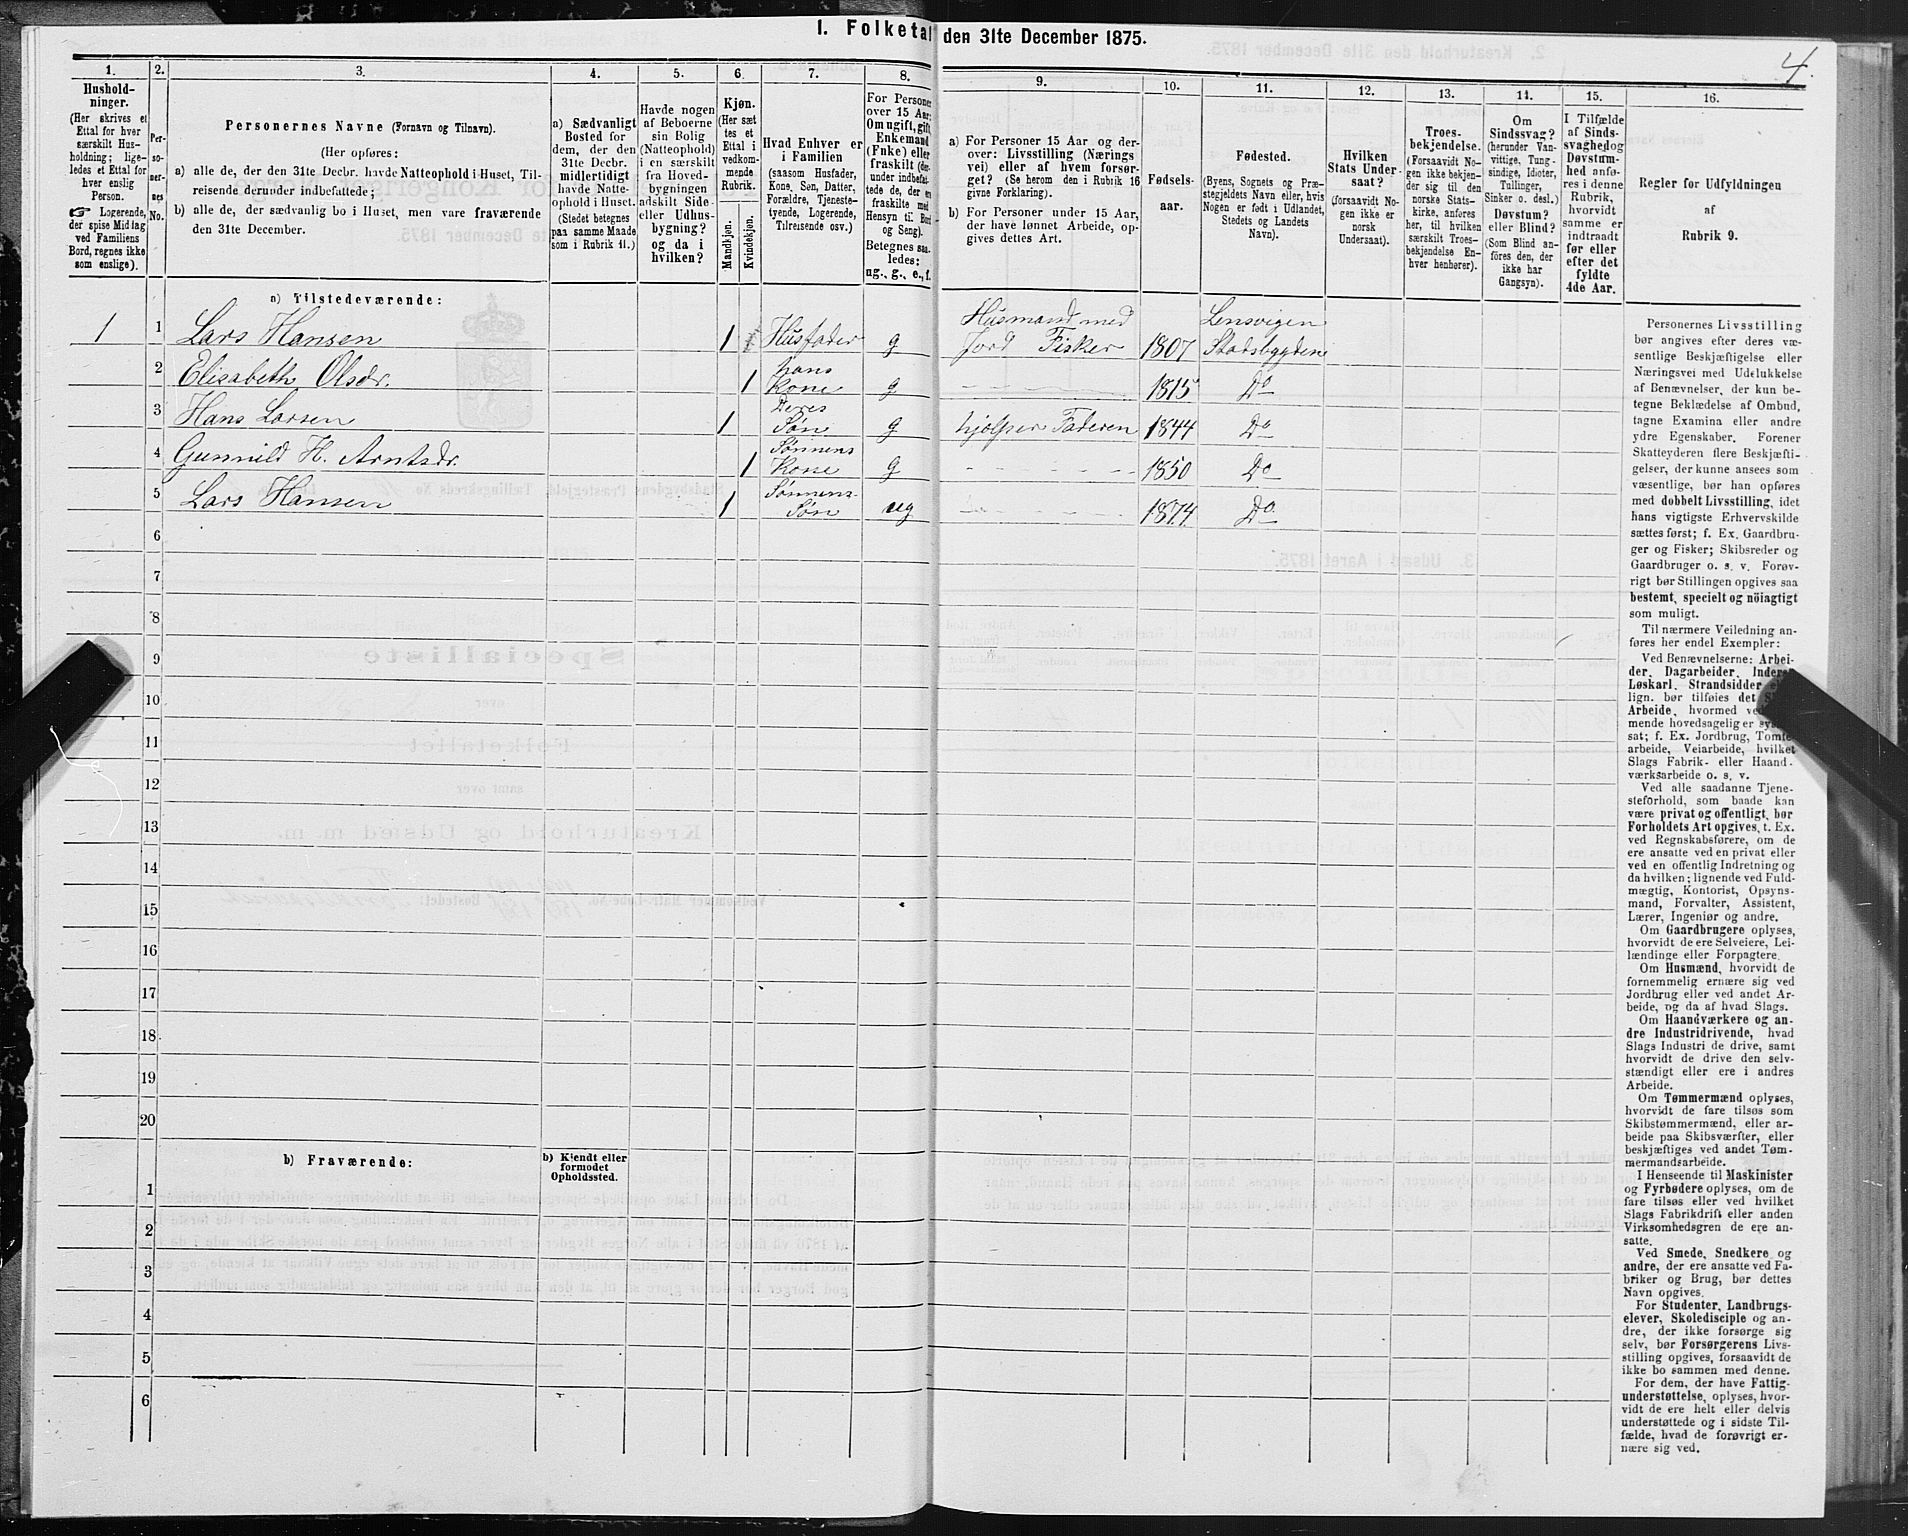 1. Folketal den 31te December 1875.
4.
1. 2. 3. 4. 5. 6. 7. 8. 9. 10. 11. 12. 13. 14. 15. 16.
Hushold-
ninger.
(Her skrives et
Ettal for hver
særskilt Hus-
holdning; lige-
ledes et Ettal for
hver enslig
Person.
Logerende,
der spise Middag
ved Familiens
Bord, regnes ikke
som enslige).
Per-
so-
ner-
nes
No.
Personernes Navne (Fornavn og Tilnavn).
(Her opføres:
a) alle de, der den 31te Decbr. havde Natteophold i Huset, Til-
reisende derunder indbefattede;
b) alle de, der sædvanlig bo i Huset, men vare fraværende
den 31te December.
a) Sædvanligt
Bosted for
dem, der den
31te Decbr.
midlertidigt
havde Natte-
ophold i Huset.
(Stedet betegnes
paa samme Maade
som i Rubrik 11.)
Havde nogen
af Beboerne
sin Bolig
(Natteophold)
i en særskilt
fra Hoved-
bygningen
adskilt Side-
eller Udhus-
bygning?
og da i
hvilken?
Kjøn.
(Her sæt
tes et
Ettal i
vedkom-
mende
Rubrik.
Mandkjøn.
Kvindekjøn.
Hvad Enhver er
i Familien
(saasom Husfader,
Kone, Søn, Datter,
Forældre, Tjeneste-
tyende, Logerende,
Tilreisende osv.)
For Personer
over 15 Aar:
Om ugift, gift,
Enkemand
(Enke) eller
fraskilt (der-
under indbefat-
tede de, der er
fraskilte med
Hensyn til Bord
og Seng).
Betegnes saa-
ledes:
ug., g., e., f.
a) For Personer 15 Aar og der-
over: Livsstilling (Nærings
vei) eller af hvem forsør-
get? (Se herom den i Rubrik 16
givne Forklaring).
b) For Personer under 15 Aar,
der have lønnet Arbeide, op-
gives dettes Art.
Fødsels-
aar.
Fødested.
(Byens, Sognets og Præ-
stegjeldets Navn eller, hvis
Nogen er født i Udlandet,
Stedets og Landets
Navn).
Hvilken
Stats Under-
saat?
(forsaavidt No-
gen ikke er
norsk
Undersaat).
Troes-
bekjendelse.
(Forsaavidt No-
gen ikke bekjen-
der sig til den
norske Stats-
kirke, anføres
her, til hvilken
særskilt Troes-
bekjendelse En-
hver henhører).
Om
Sindssvag?
(herunder Van-
vittige, Tung-
sindige, Idioter,
Tullinger,
Sinker o. desl.)
Døvstum?
eller Blind?
(Som Blind an-
føres den, der
ikke har
Gangsyn).
I Tilfælde
af Sinds-
svaghed og
Døvstum-
hed anfø-
res i denne
Rubrik,
hvorvidt
samme er
indtraadt
før eller
efter det
fyldte
4de Aar.
Regler for Udfyldningen
af
Rubrik 9.
a) Tilstedeværende:
1 1 Lars Hansen 1 Husfader g Husmand med Jord Fisker 1807 Lensvigen Stadsbygden
2 Elisabeth Olsdr. 1 hans Kone g 1815 Do
3 Hans Larsen 1 Deres Søn g hjælper Faderen 1844 Do
4 Gunnild H. Arntsdr. 1 Sønnens Kone g 1850 Do
5 Lars Hansen 1 Sønnens Søn ug 1874 Do
6
7
8
9
10
11
12
13
14
15
16
17
18
19
20
b) Fraværende:
b) Kjendt eller
formodet
Opholdssted.
1
2
3
4
5
6
Personernes Livsstilling
bør angives efter deres væ-
sentlige Beskjæftigelse eller
Næringsvei med Udelukkelse
af Benævnelser, der kun be-
tegne Beklædelse af Ombud,
tagne Examina eller andre
ydre Egenskaber. Forener
Skatteyderen flere Beskjæfti-
gelser, der kunne ansees som
væsentlige, bør han opføres
med dobbelt Livsstilling, idet
hans vigtigste Erhvervskilde
sættes først; f. Ex. Gaardbru-
ger og Fisker; Skibsreder og
Gaardbruger o. s. v. Forøv-
rigt bør Stillingen opgives saa
bestemt, specielt og nöiagtigt
som muligt.
Til nærmere Veiledning an-
føres her endel Exempler:
Ved Benævnelserne: Arbei-
der, Dagarbeider, Inderst,
Løskarl, Strandsidder
lign. bør tilføies det
Arbeide, hvormed
mende hovedsagelig er
sat; f. Ex. Jordbrug, Tomte-
arbeide, Veiarbeide, hvilket
Slags Fabrik- eller Haand-
værksarbeide o. s. v.
Ved alle saadanne Tjene-
steforhold, som baade kan
være privat og offentligt, bør
Forholdets Art opgives, t. Ex.
ved Regnskabsførere, om de
ere ansatte ved en privat eller
ved en offentlig Indretning og
da hvilken; lignende ved Fuld-
mægtig, Kontorist, Opsyns-
mand, Forvalter, Assistent,
Lærer, Ingeniør og andre.
Om Gaardbrugere oplyses,
hvorvidt de ere Selveiere, Lei-
lændinge eller Forpagtere.
Om Husmænd, hvorvidt de
fornemmelig ernære sig ved
Jordbrug eller ved andet Ar-
beide, og da af hvad Slags.
Om Haandværkere og an-
dre Industridrivende, hvad
Slags Industri de drive, samt
hvorvidt de drive den selv-
stændigt eller ere i andres
Arbeide.
Om Tømmermænd oplyses,
hvorvidt de fare tilsøs som
Skibstømmermænd, eller ar-
beide paa Skibsværfter, eller
beskjæftiges ved andet Tøm-
mermandsarbeide.
I Henseende til Maskinister
og Fyrbødere oplyses, om de
fare tilsøs eller ved hvilket
Slags Fabrikdrift eller anden
Virksomhedsgren de ere an-
satte.
Ved Smede, Snedkere og
andre, der ere ansatte ved Fa-
briker og Brug, bør dettes
Navn opgives.
For Studenter, Landbrugs-
elever, Skoledisciple og an-
dre, der ikke forsørge sig
selv, bør Forsørgerens Livs-
stilling opgives, forsaavidt de
ikke bo sammen med denne.
For dem, der have Fattig-
understøttelse, oplyses, hvor-
vidt de ere helt eller delvis
understøttede og i sidste Til-
fælde, hvad de forøvrigt er-
nære sig ved.